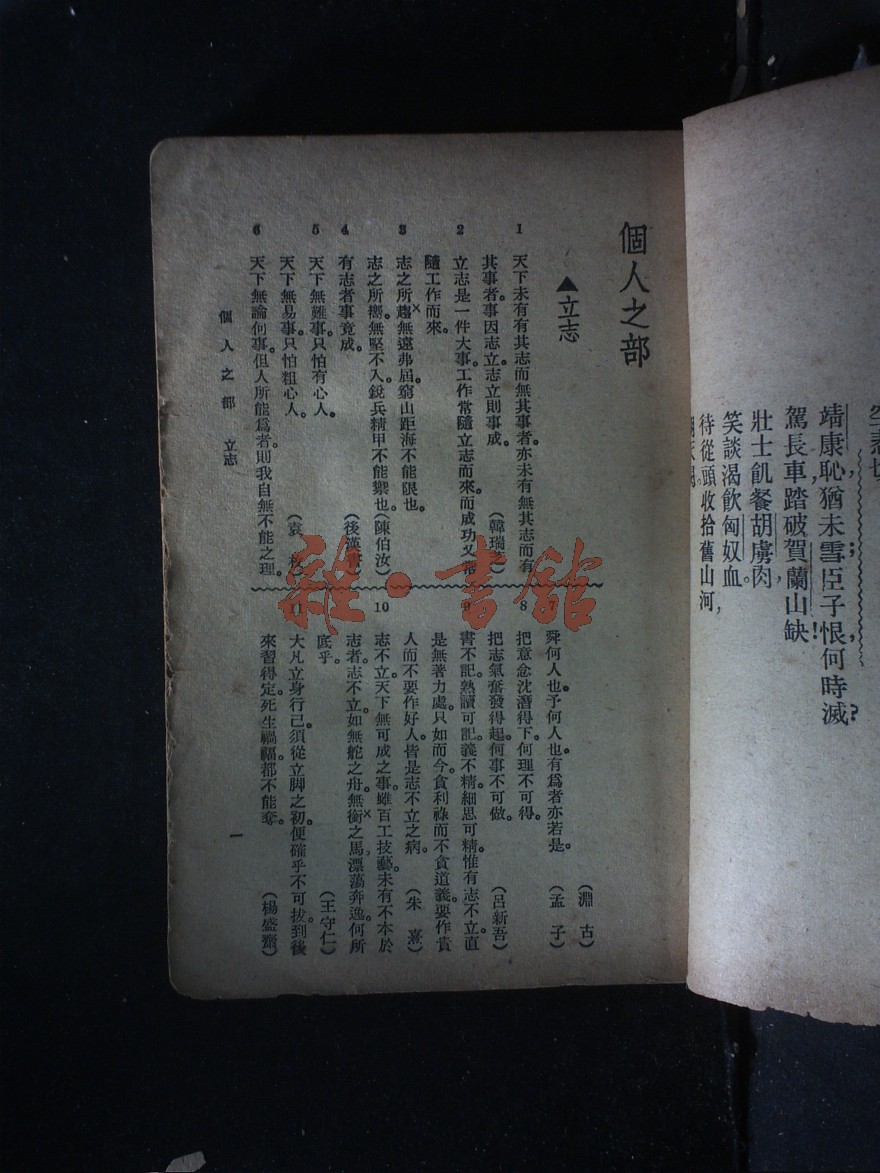 空悲切
靖康恥，猶未雪；臣子恨，何時滅？
駕長車，踏破賀蘭山缺！
壯士飢餐胡虜肉，
笑談渴飲匈奴血。
待從頭收拾舊山河，
個人之部
▲立志
1 天下未有有其志而無其事者。亦未有無其志而有
其事者。事因志立。志立則事成。
2 立志是一件大事。工作常隨立志而來。而成功又常
隨工作而來。
3 志之所趨。無遠弗屆。窮山距海。不能限也。
志之所嚮。無堅不入。銳兵精甲。不能禦也。（陳伯汝）
4 有志者事竟成。（後漢書）
5 天下無難事。只怕有心人。
天下無易事。只怕粗心人。
6 天下無論何事。但人所能為者。則我自無不能之理。
（淵 古）
7 舜何人也。予何人也。有為者亦若是。（孟 子）
8 把意念沈潛得下。何理不可得。
把志氣奮發得起。何事不可做。（呂新吾）
9 書不記。熟讀可記。義不精。細思可精。惟有志不立。直
是無著力處。只如而今。貪利祿而不貪道義。要作貴
人而不要作好人。皆是志不立之病。（朱 熹）
10 志不立。天下無可成之事。雖百工技藝。未有不本於
志者。志不立。如無舵之舟。無銜之馬。漂蕩奔逸。何所
底乎。（王守仁）
11 大凡立身行己。須從立脚之初。便確乎不可拔。到後
來習得定。死生禍福。都不能奪。（楊盛齋）
個人之部 立志
一
雜·書館